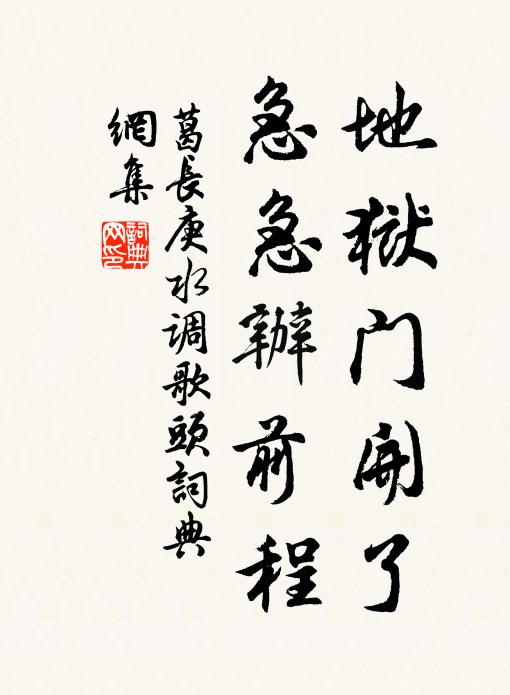 地獄門開了
急急辦前程
葛長庚水调歌頭詞典
網集
詞典
网印